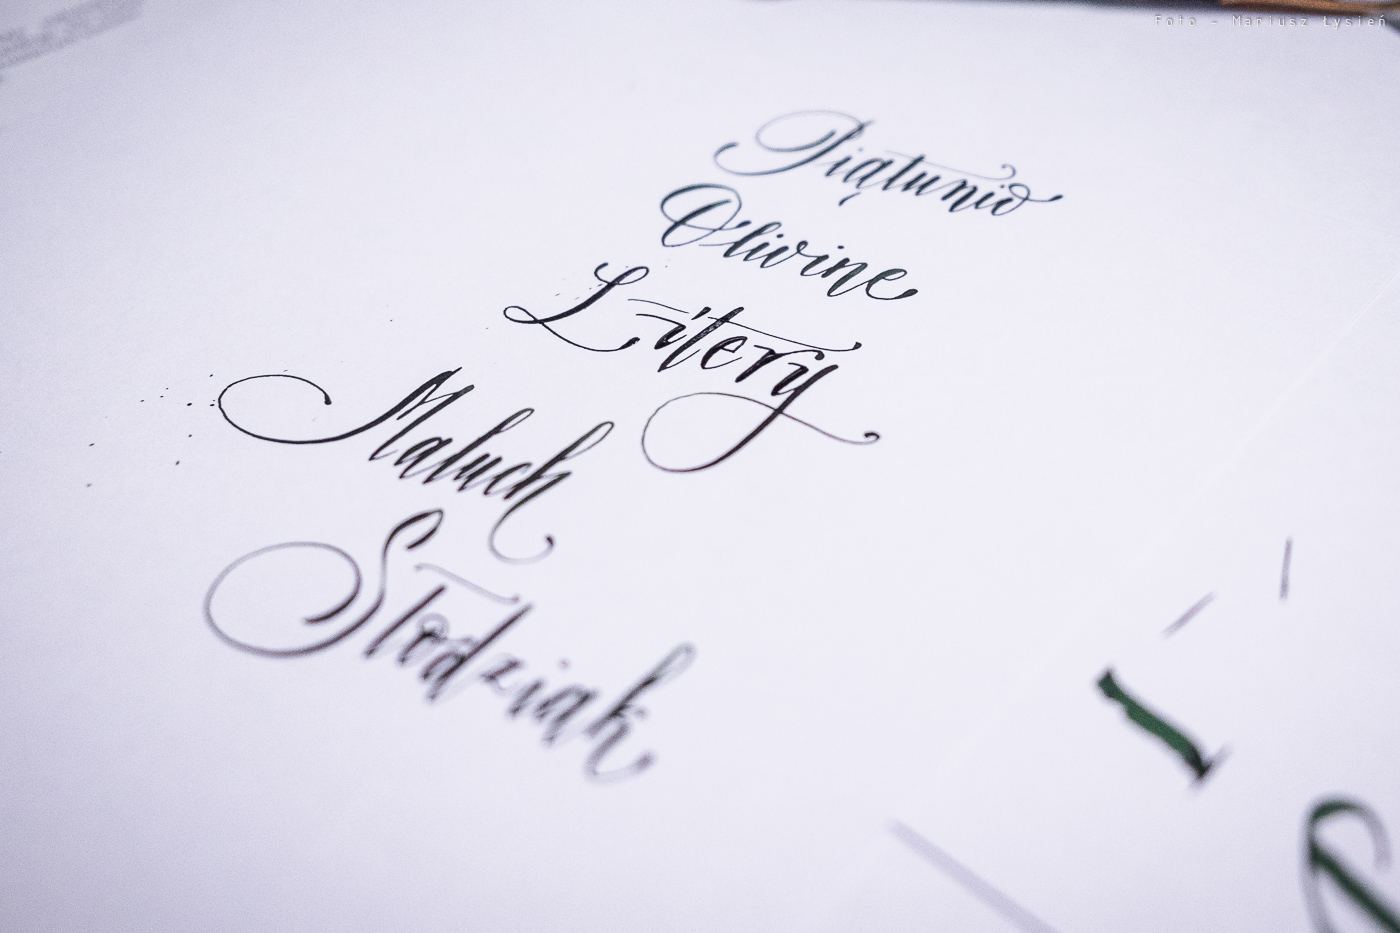 Foto - Mariusz Łysień
Piątunio
Olivine
Litery
Maluch
Słodziak